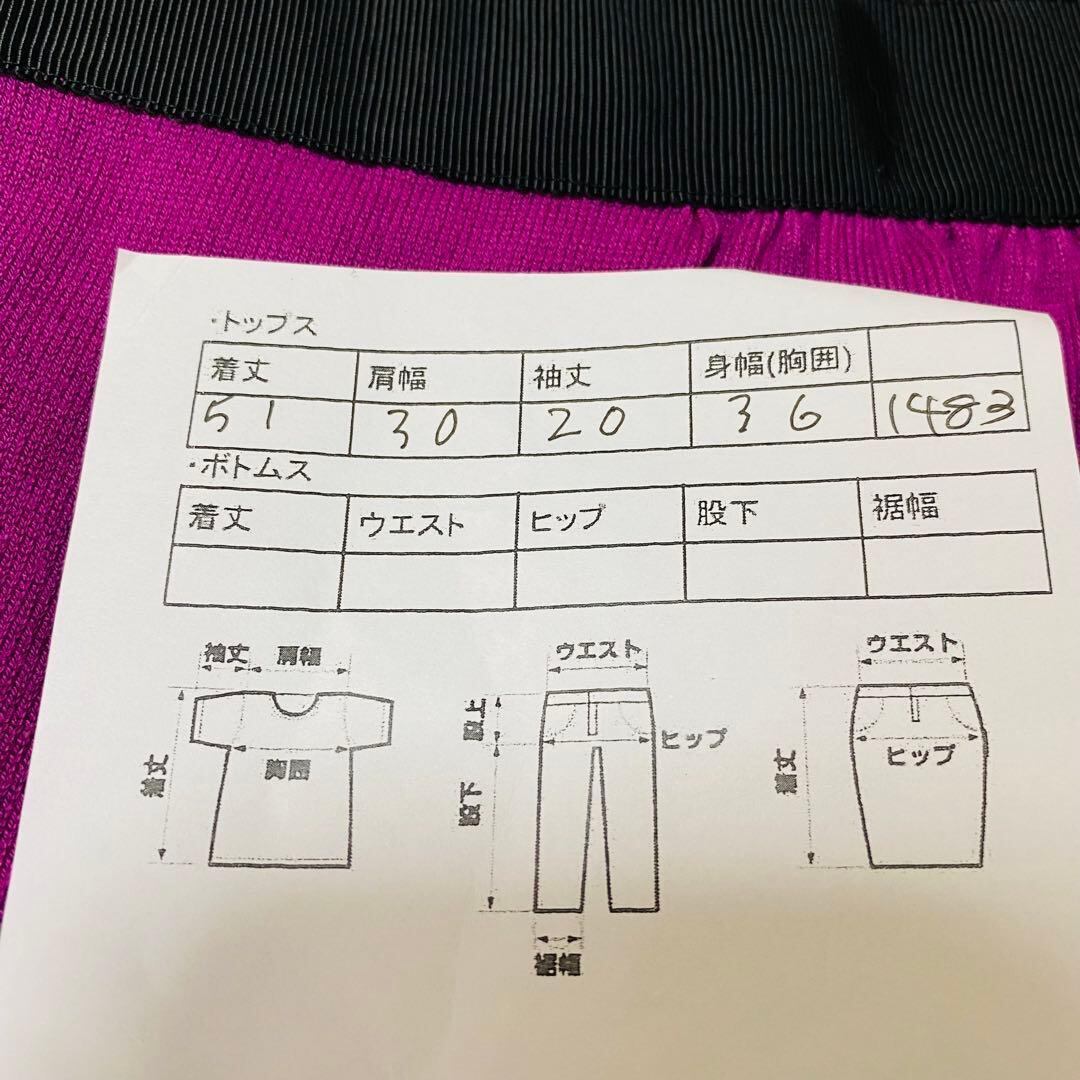 ・トップス
着丈 肩幅 袖丈 身幅(胸囲)
51 30 20 36 1483
・ボトムス
着丈 ウエスト ヒップ 股下 裾幅
袖丈 肩幅
着丈
胸囲
ウエスト
股上
ヒップ
股下
裾幅
ウエスト
着丈
ヒップ